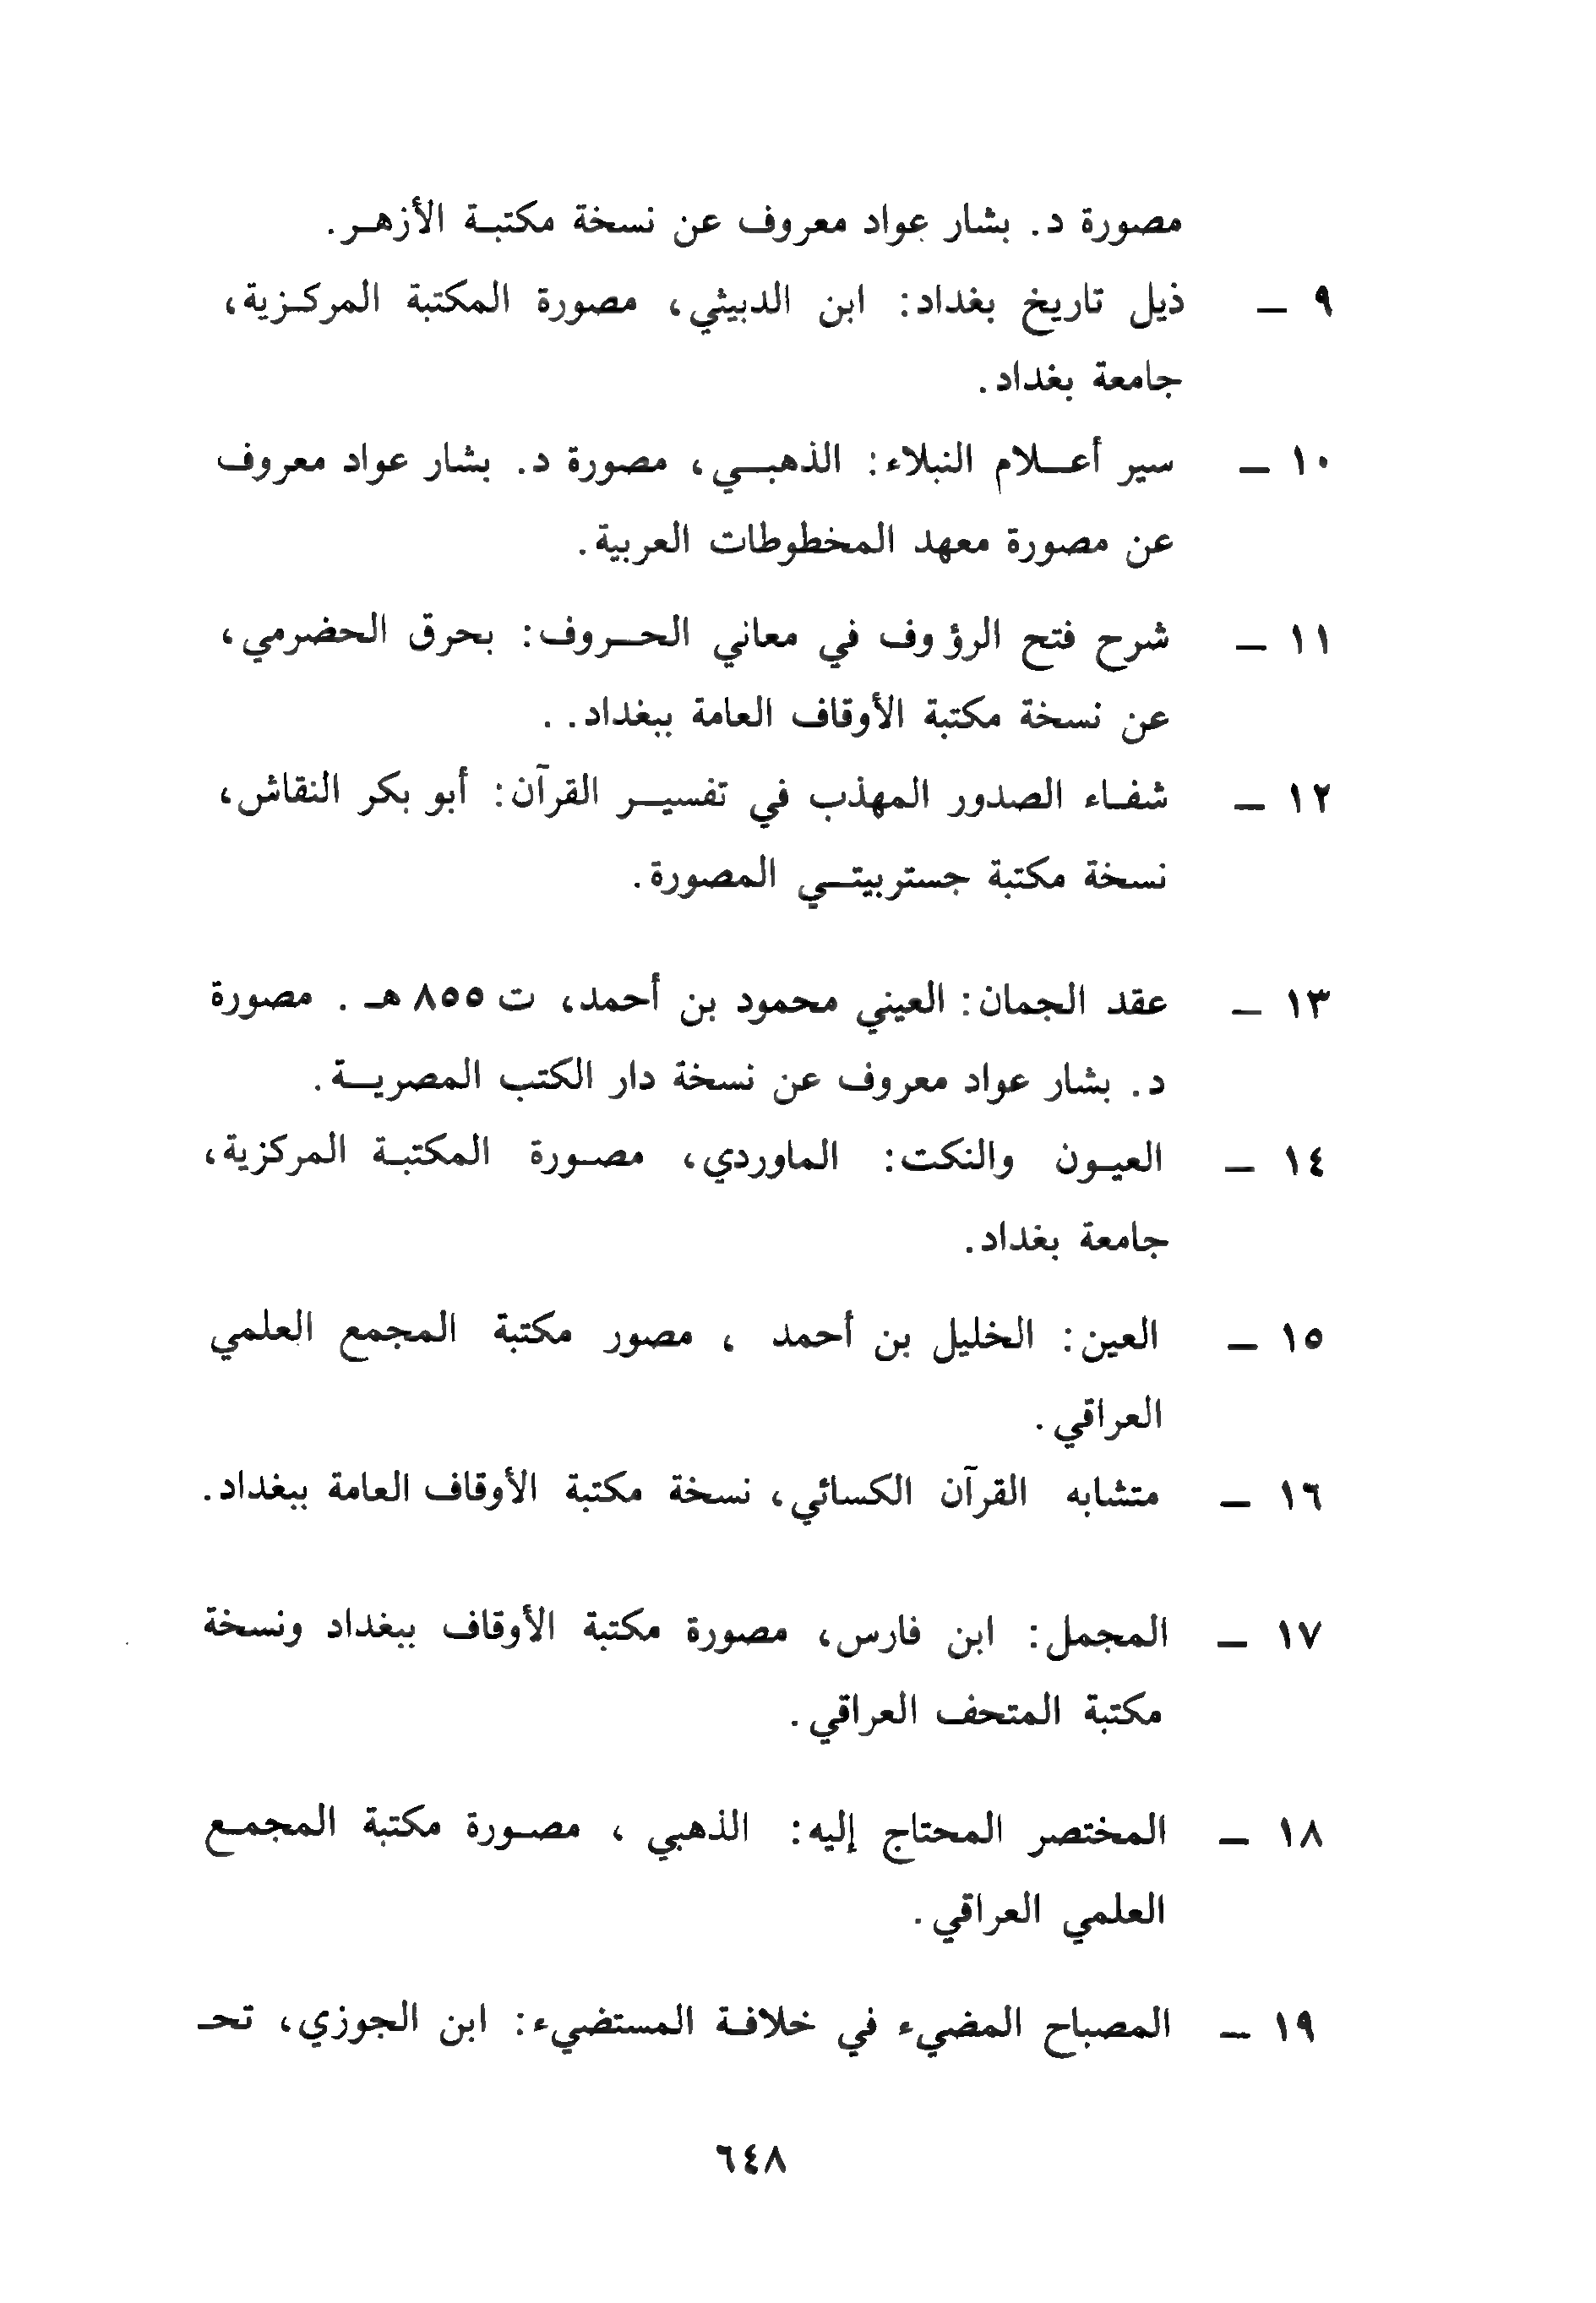 مصورة د. بشار عواد معروف عن نسخة مكتبة الأزهر.
٩ — ذيل تاريخ بغداد: ابن الدبيثي، مصورة المكتبة المركزية،
جامعة بغداد.
١٠ — سير أعلام النبلاء: الذهبي، مصورة د. بشار عواد معروف
عن مصورة معهد المخطوطات العربية.
١١ — شرح فتح الرؤوف في معاني الحروف: بحرق الحضرمي،
عن نسخة مكتبة الأوقاف العامة ببغداد. .
١٢ — شفاء الصدور المهذب في تفسير القرآن: أبو بكر النقاش،
نسخة مكتبة جستربيتي المصورة.
١٣ — عقد الجمان: العيني محمود بن أحمد، ت ٨٥٥ هـ . مصورة
د. بشار عواد معروف عن نسخة دار الكتب المصرية.
١٤ — العيون والنكت: الماوردي، مصورة المكتبة المركزية،
جامعة بغداد.
١٥ — العين: الخليل بن أحمد ، مصور مكتبة المجمع العلمي
العراقي.
١٦ — متشابه القرآن الكسائي، نسخة مكتبة الأوقاف العامة ببغداد.
١٧ — المجمل: ابن فارس، مصورة مكتبة الأوقاف ببغداد ونسخة
مكتبة المتحف العراقي.
١٨ — المختصر المحتاج إليه: الذهبي ، مصورة مكتبة المجمع
العلمي العراقي.
١٩ — المصباح المضيء في خلافة المستضيء: ابن الجوزي، تحـ
٦٤٨